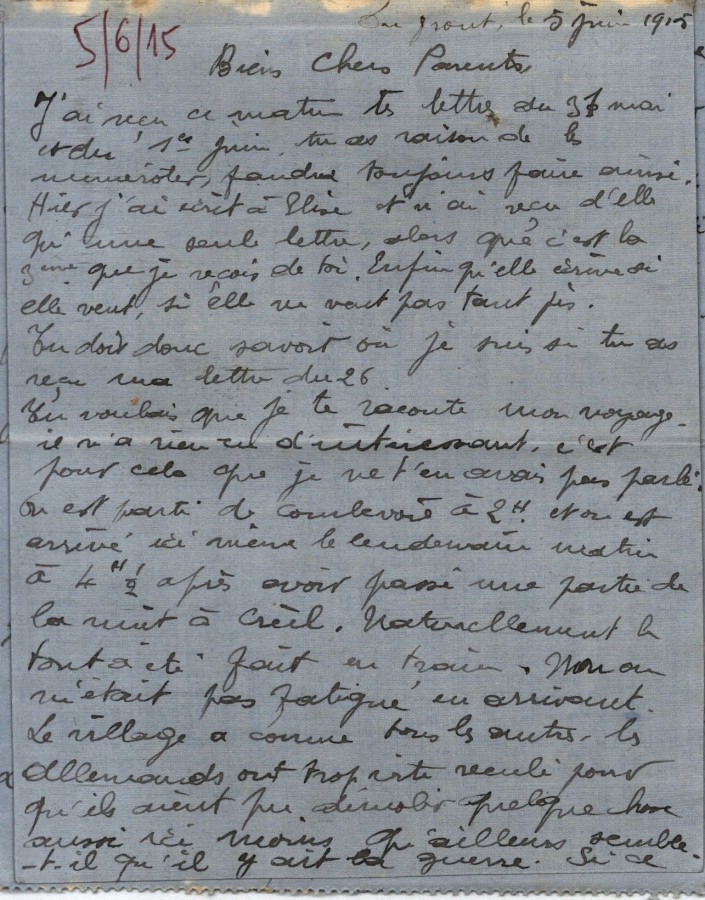 5/6/15
Du front, le 5 juin 1915
Biens Chers Parents
J'ai reçu ce matin tes lettres du 31 mai
et du 1er juin, tu as raison de les
numéroter, faudra toujours faire ainsi.
Hier j'ai écrit à Elise et n'ai reçu d'elle
qu'une seule lettre, alors que c'est la
3ème que je reçois de toi. Enfin qu'elle écrive si
elle veut, si elle ne veut pas tant pis.
Tu doit donc savoir où je suis si tu as
reçu ma lettre du 26
Tu voulais que je te raconte mon voyage
il n'a rien eu d'intéressant, c'est
pour cela que je ne t'en avais pas parlé.
On est parti de Courbevoie à 2H. et on est
arrivé ici même le lendemain matin
à 4H ½ après avoir passé une partie de
la nuit à Creil. Naturellement le
tout a été fait en train. Non on
n'était pas fatigué en arrivant.
Le village a comme tous les autres, les
Allemands ont trop vite reculé pour
qu'ils aient pu démolir quelque chose
aussi ici moins qu'ailleurs semble-
-t-il qu'il y ait la guerre. Si ce